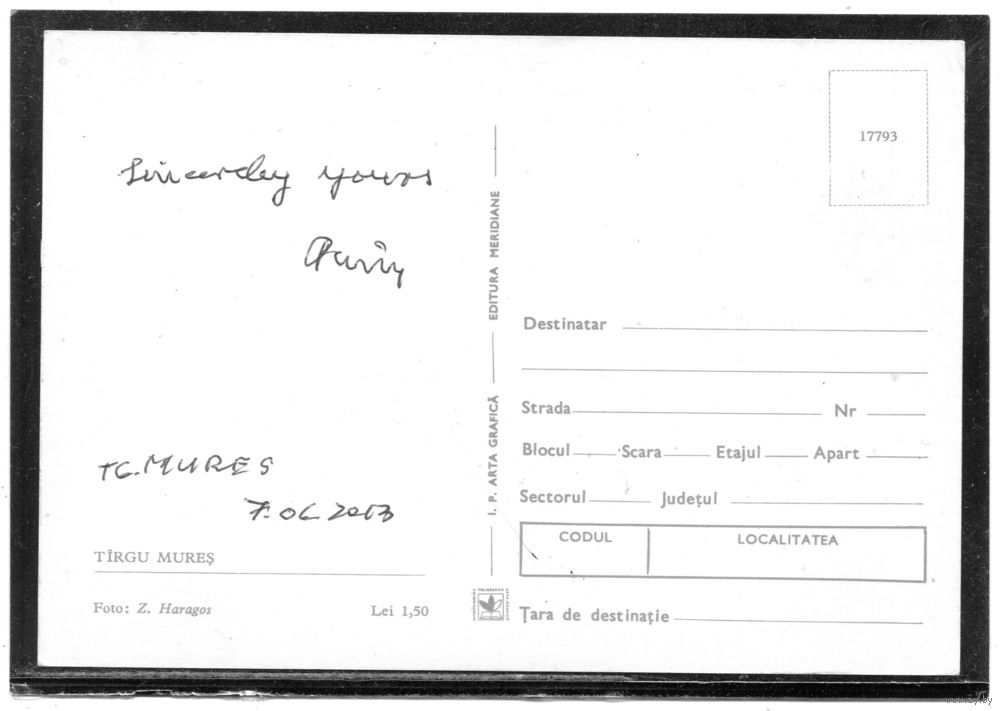 Sincerely yours
TG. MURES
7.06 2013
TÎRGU MUREȘ
Foto: Z. Haragos
Lei 1,50
I. P. ARTA GRAFICĂ
EDITURA MERIDIANE
17793
Destinatar
Strada Nr
Blocul Scara Etajul Apart
Sectorul Județul
CODUL LOCALITATEA
Țara de destinație